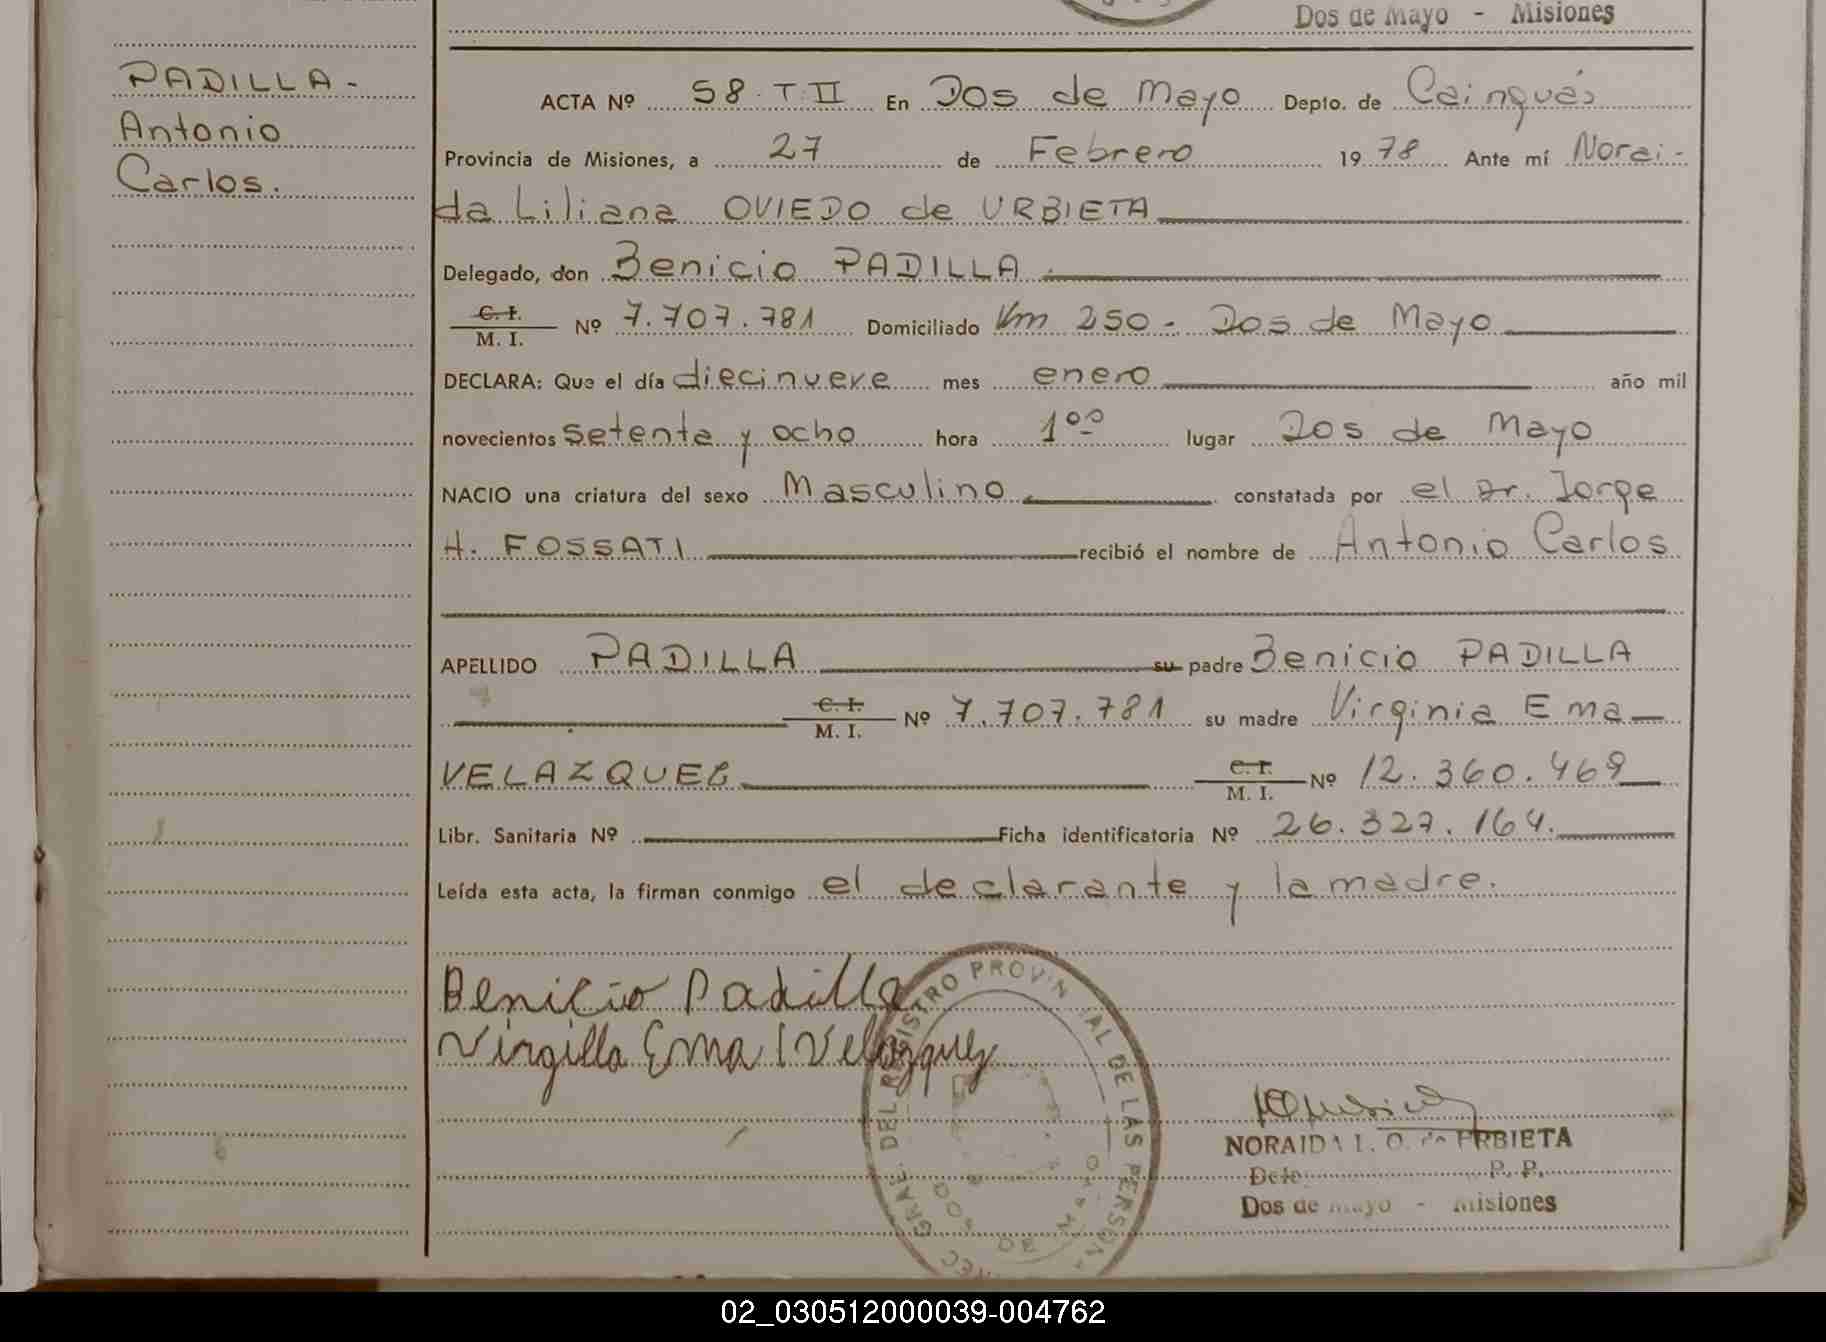 Dos de Mayo - Misiones
PADILLA -
Antonio
Carlos.
ACTA Nº 58 . T. II En Dos de Mayo Depto. de Cainguás
Provincia de Misiones, a 27 de Febrero 19 78 Ante mí Norai-
da Liliana OVIEDO de URBIETA
Delegado, don Benicio PADILLA
C. I.
M. I. Nº 7.707.781 Domiciliado Km 250 - Dos de Mayo
DECLARA: Que el día diecinueve mes enero año mil
novecientos setenta y ocho hora 1⁰⁰ lugar Dos de Mayo
NACIO una criatura del sexo Masculino constatada por el Dr. Jorge
H. FOSSATI recibió el nombre de Antonio Carlos
APELLIDO PADILLA su padre Benicio PADILLA
C. I.
M. I. Nº 7.707.781 su madre Virginia Ema
VELAZQUEZ C. I.
M. I. Nº 12.360.469
Libr. Sanitaria Nº Ficha identificatoria Nº 26.327.164.
Leída esta acta, la firman conmigo el declarante y la madre.
Benicio Padilla
Virgilla Ema Velazquez
GRAL. DEL REGISTRO PROVINCIAL DE LAS PERSONAS
DOS DE MAYO
NORAIDA L. O. de URBIETA
Dele P. P.
Dos de Mayo - Misiones
02_030512000039-004762